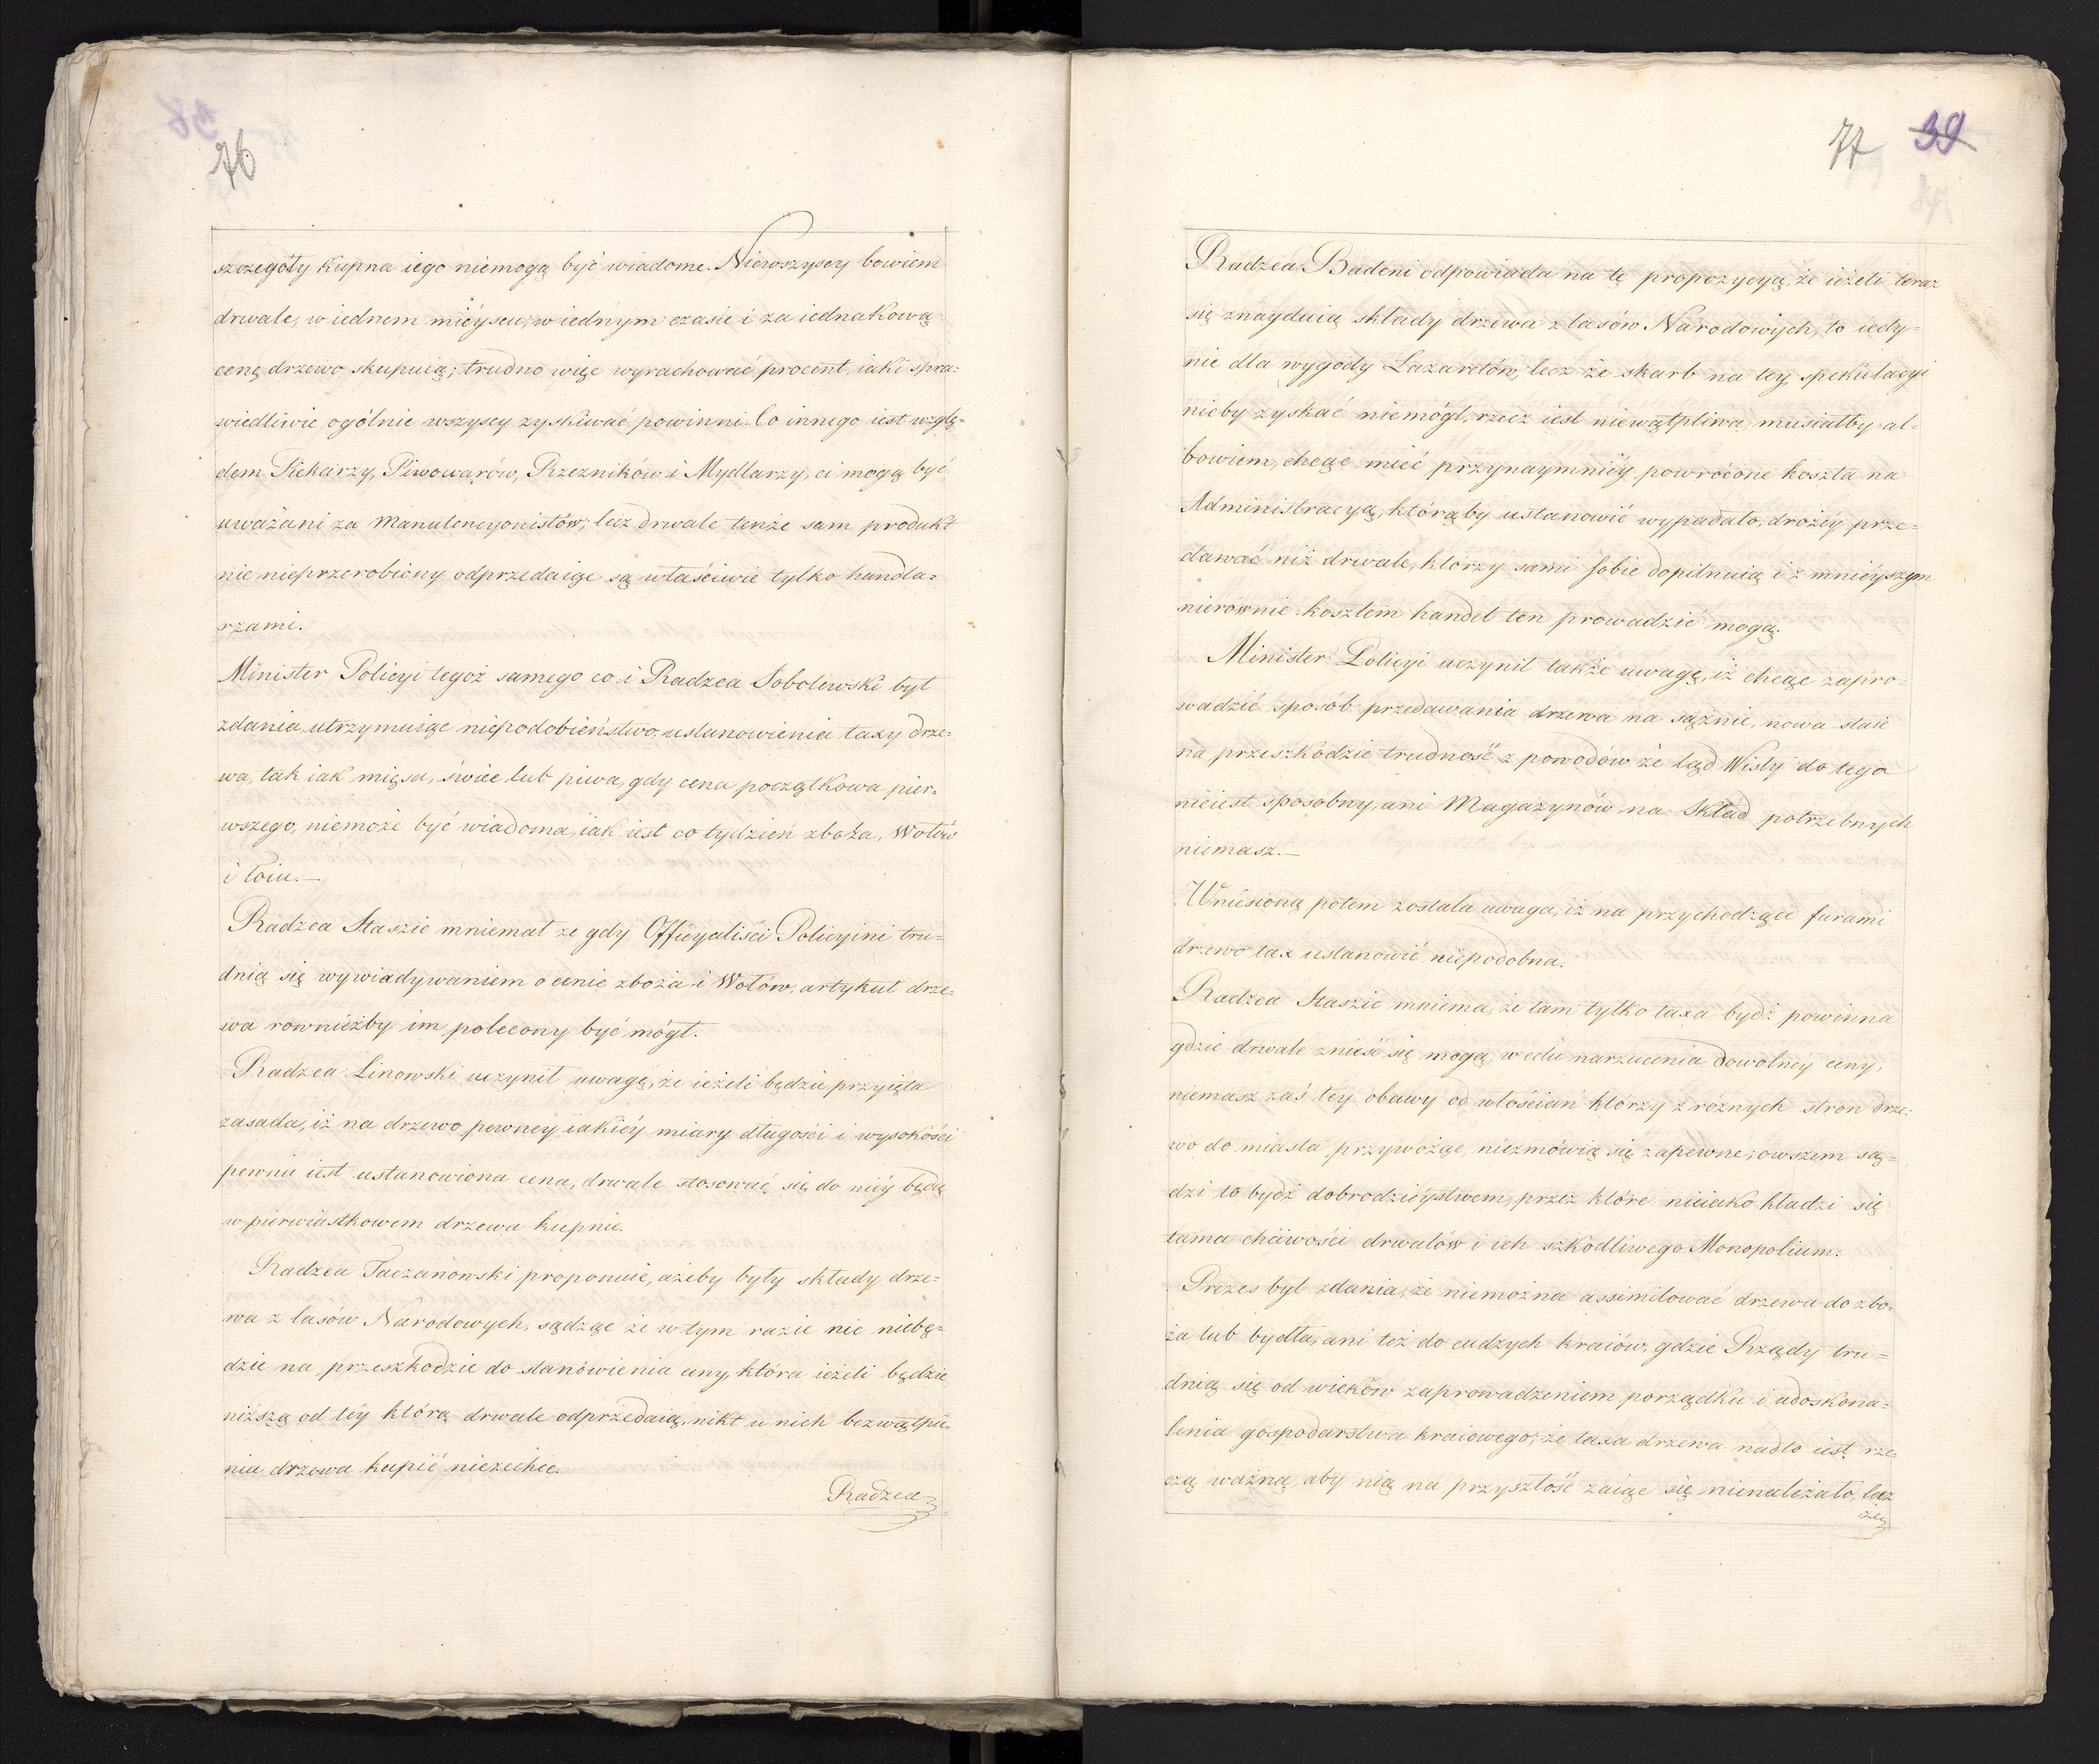 76
szczegóły kupna iego niemogą być wiadome. Niewszyscy bowiem
drwale, w iednem mieyscu, w iednym czasie i za iednakową
cenę drzewo skupuią; trudno więc wyrachować procent, iaki spra=
wiedliwie ogólnie wszyscy zyskiwać powinni. Co innego iest wzglę=
dem Piekarzy, Piwowarów, Rzezników i Mydlarzy, ci mogą być
uważani za Manutencyonistów, lecz drwale tenże sam produkt
nic nieprzerobiony odprzedaiąc są właściwie tylko handla=
rzami.
Minister Policyi tegoż samego co i Radzca Sobolewski był
zdania, utrzymuiąc niepodobieństwo, ustanowienia taxy drze=
wa, tak iak mięsa, świec lub piwa, gdy cena początkowa pier=
wszego, niemoże być wiadoma, iak iest co tydzień zboża, Wołów
i łoiu.—
Radzca Staszic mniemał ze gdy Officyaliści Policyini tru=
dnią się wywiadywaniem o cenie zboża i Wołów, artykuł drze=
wa rownieżby im polecony być mógł.
Radzca Linowski uczynił uwagę, że ieżeli będzie przyięta
zasada, iż na drzewo pewnéy iakiéy miary długości i wysokości
pewna iest ustanowiona cena, drwale stosować się do niéy będą
w pierwiastkowem drzewa kupnie.
Radzca Taczanowski proponuie, ażeby były składy drze=
wa z lasów Narodowych, sądząc że w tym razie nic niebę=
dzie na przeszkodzie do stanówienia ceny, która ieżeli będzie
niższą od téy którą drwale odprzedaią, nikt u nich bezwątpie=
nia drzewa kupić niezechce.
Radzca
77 39
Radzca Badeni odpowiada na tę propozycyą, że ieżeli teraz
się znayduią składy drzewa z lasów Narodowych, to iedy=
nie dla wygody Lazaretów, lecz że skarb na tey spekulacyi
nicby zyskać niemógł, rzecz iest niewątpliwa, musiałby al=
bowiem, chcąc mieć przynaymniéy powrócone koszta na
Administracyą, którąby ustanowić wypadało, drożéy prze=
dawać niż drwale, którzy sami sobie dopilnuią i z mnieyszym
nierównie kosztem handel ten prowadzić mogą.
Minister Policyi uczynił także uwagę, iż chcąc zapro=
wadzić sposób przedawania drzewa na sążnie, nowa staie
na przeszkodzie trudność z powodów że ląd Wisły do tego
nieiest sposobny, ani Magazynów na Skład potrzebnych
niemasz.—
Wniesioną potem została uwaga, iż na przychodzące furami
drzewo tax ustanowić niepodobna.
Radzca Staszic mniema, że tam tylko taxa bydź powinna
gdzie drwale znieść się mogą w celu narzucenia dowolney ceny,
niemasz zaś téy obawy od włościan którzy z różnych stron drze=
wo do miasta przywożąc, niezmówią się zapewne; owszem są=
dzi to bydź dobrodzieystwem, przez które nieiako kładzi się
tama chciwości drwalów i ich szkodliwego Monopolium.
Prezes był zdania, że niemożna assimilować drzewa do zbo=
ża lub bydła, ani też do cudzych kraiów, gdzie Rządy tru=
dnią się od wieków zaprowadzeniem porządku i udoskona=
lenia gospodarstwa kraiowego; że taxa drzewa nadto iest rze=
czą ważną, aby nią na przyszłość zaiąć się nienależało, lecz
że